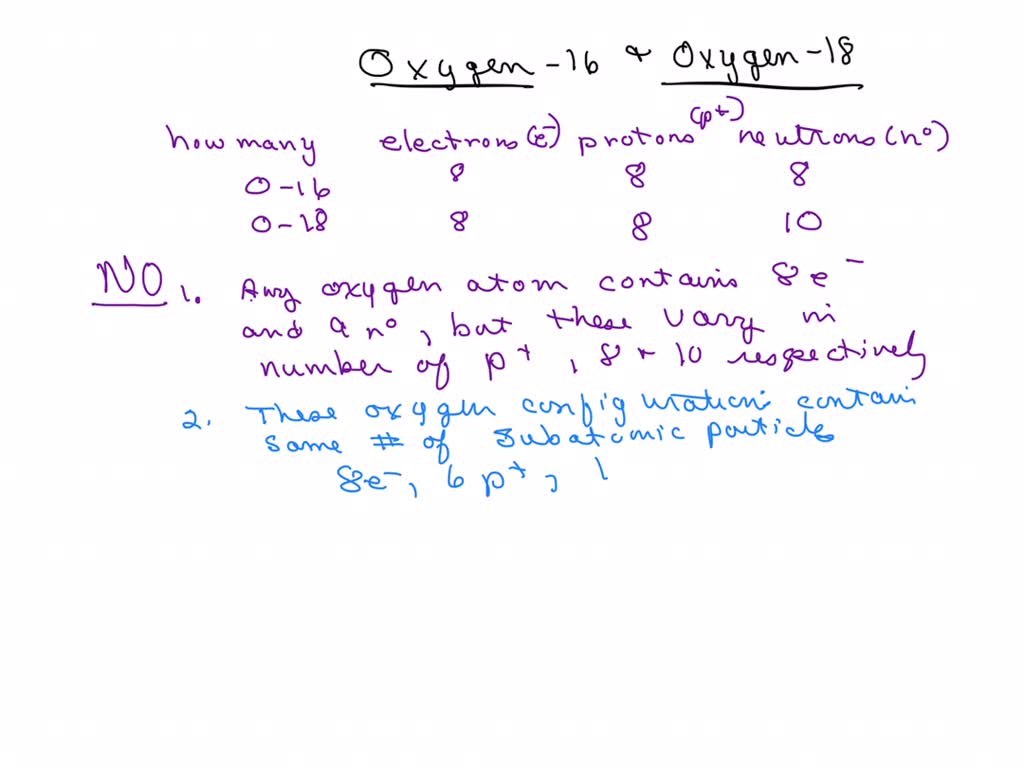 Oxygen-16 & Oxygen-18
how many electrons (e⁻) protons (p+) neutrons (n⁰)
O-16 8 8 8
O-18 8 8 10
NO 1. Any oxygen atom contains 8e⁻
and 9 n⁰, but these vary in
number of p+, 8 + 10 respectively
2. These oxygen configurations contain
same # of subatomic particles
8e⁻, 6 p+, 1